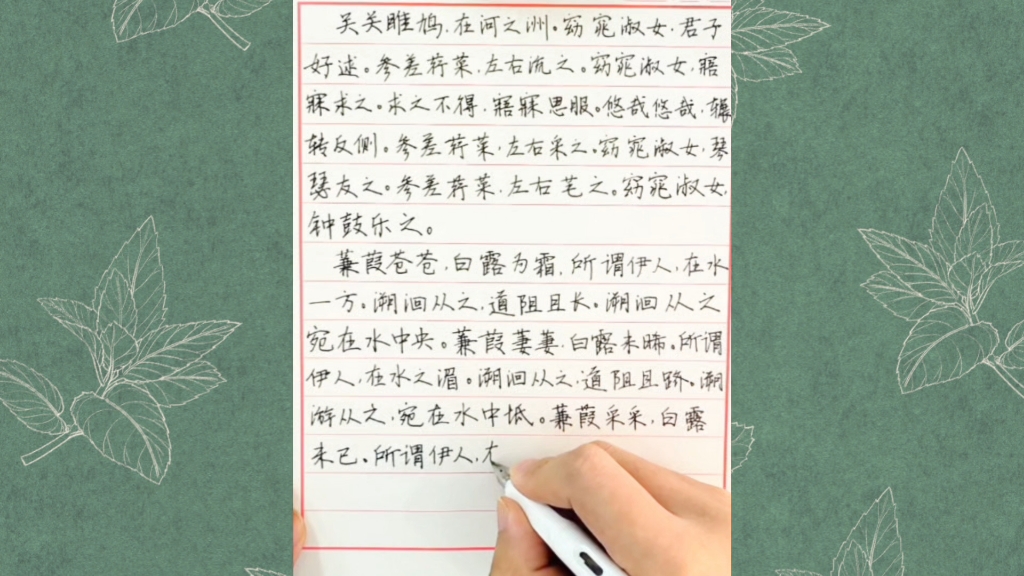 关关雎鸠,在河之洲。窈窕淑女,君子
好逑。参差荇菜,左右流之。窈窕淑女,寤
寐求之。求之不得,寤寐思服。悠哉悠哉,辗
转反侧。参差荇菜,左右采之。窈窕淑女,琴
瑟友之。参差荇菜,左右芼之。窈窕淑女
钟鼓乐之。
蒹葭苍苍,白露为霜,所谓伊人,在水
一方。溯洄从之,道阻且长。溯洄从之
宛在水中央。蒹葭萋萋,白露未晞。所谓
伊人,在水之湄。溯洄从之,道阻且跻。溯
游从之,宛在水中坻。蒹葭采采,白露
未已。所谓伊人,